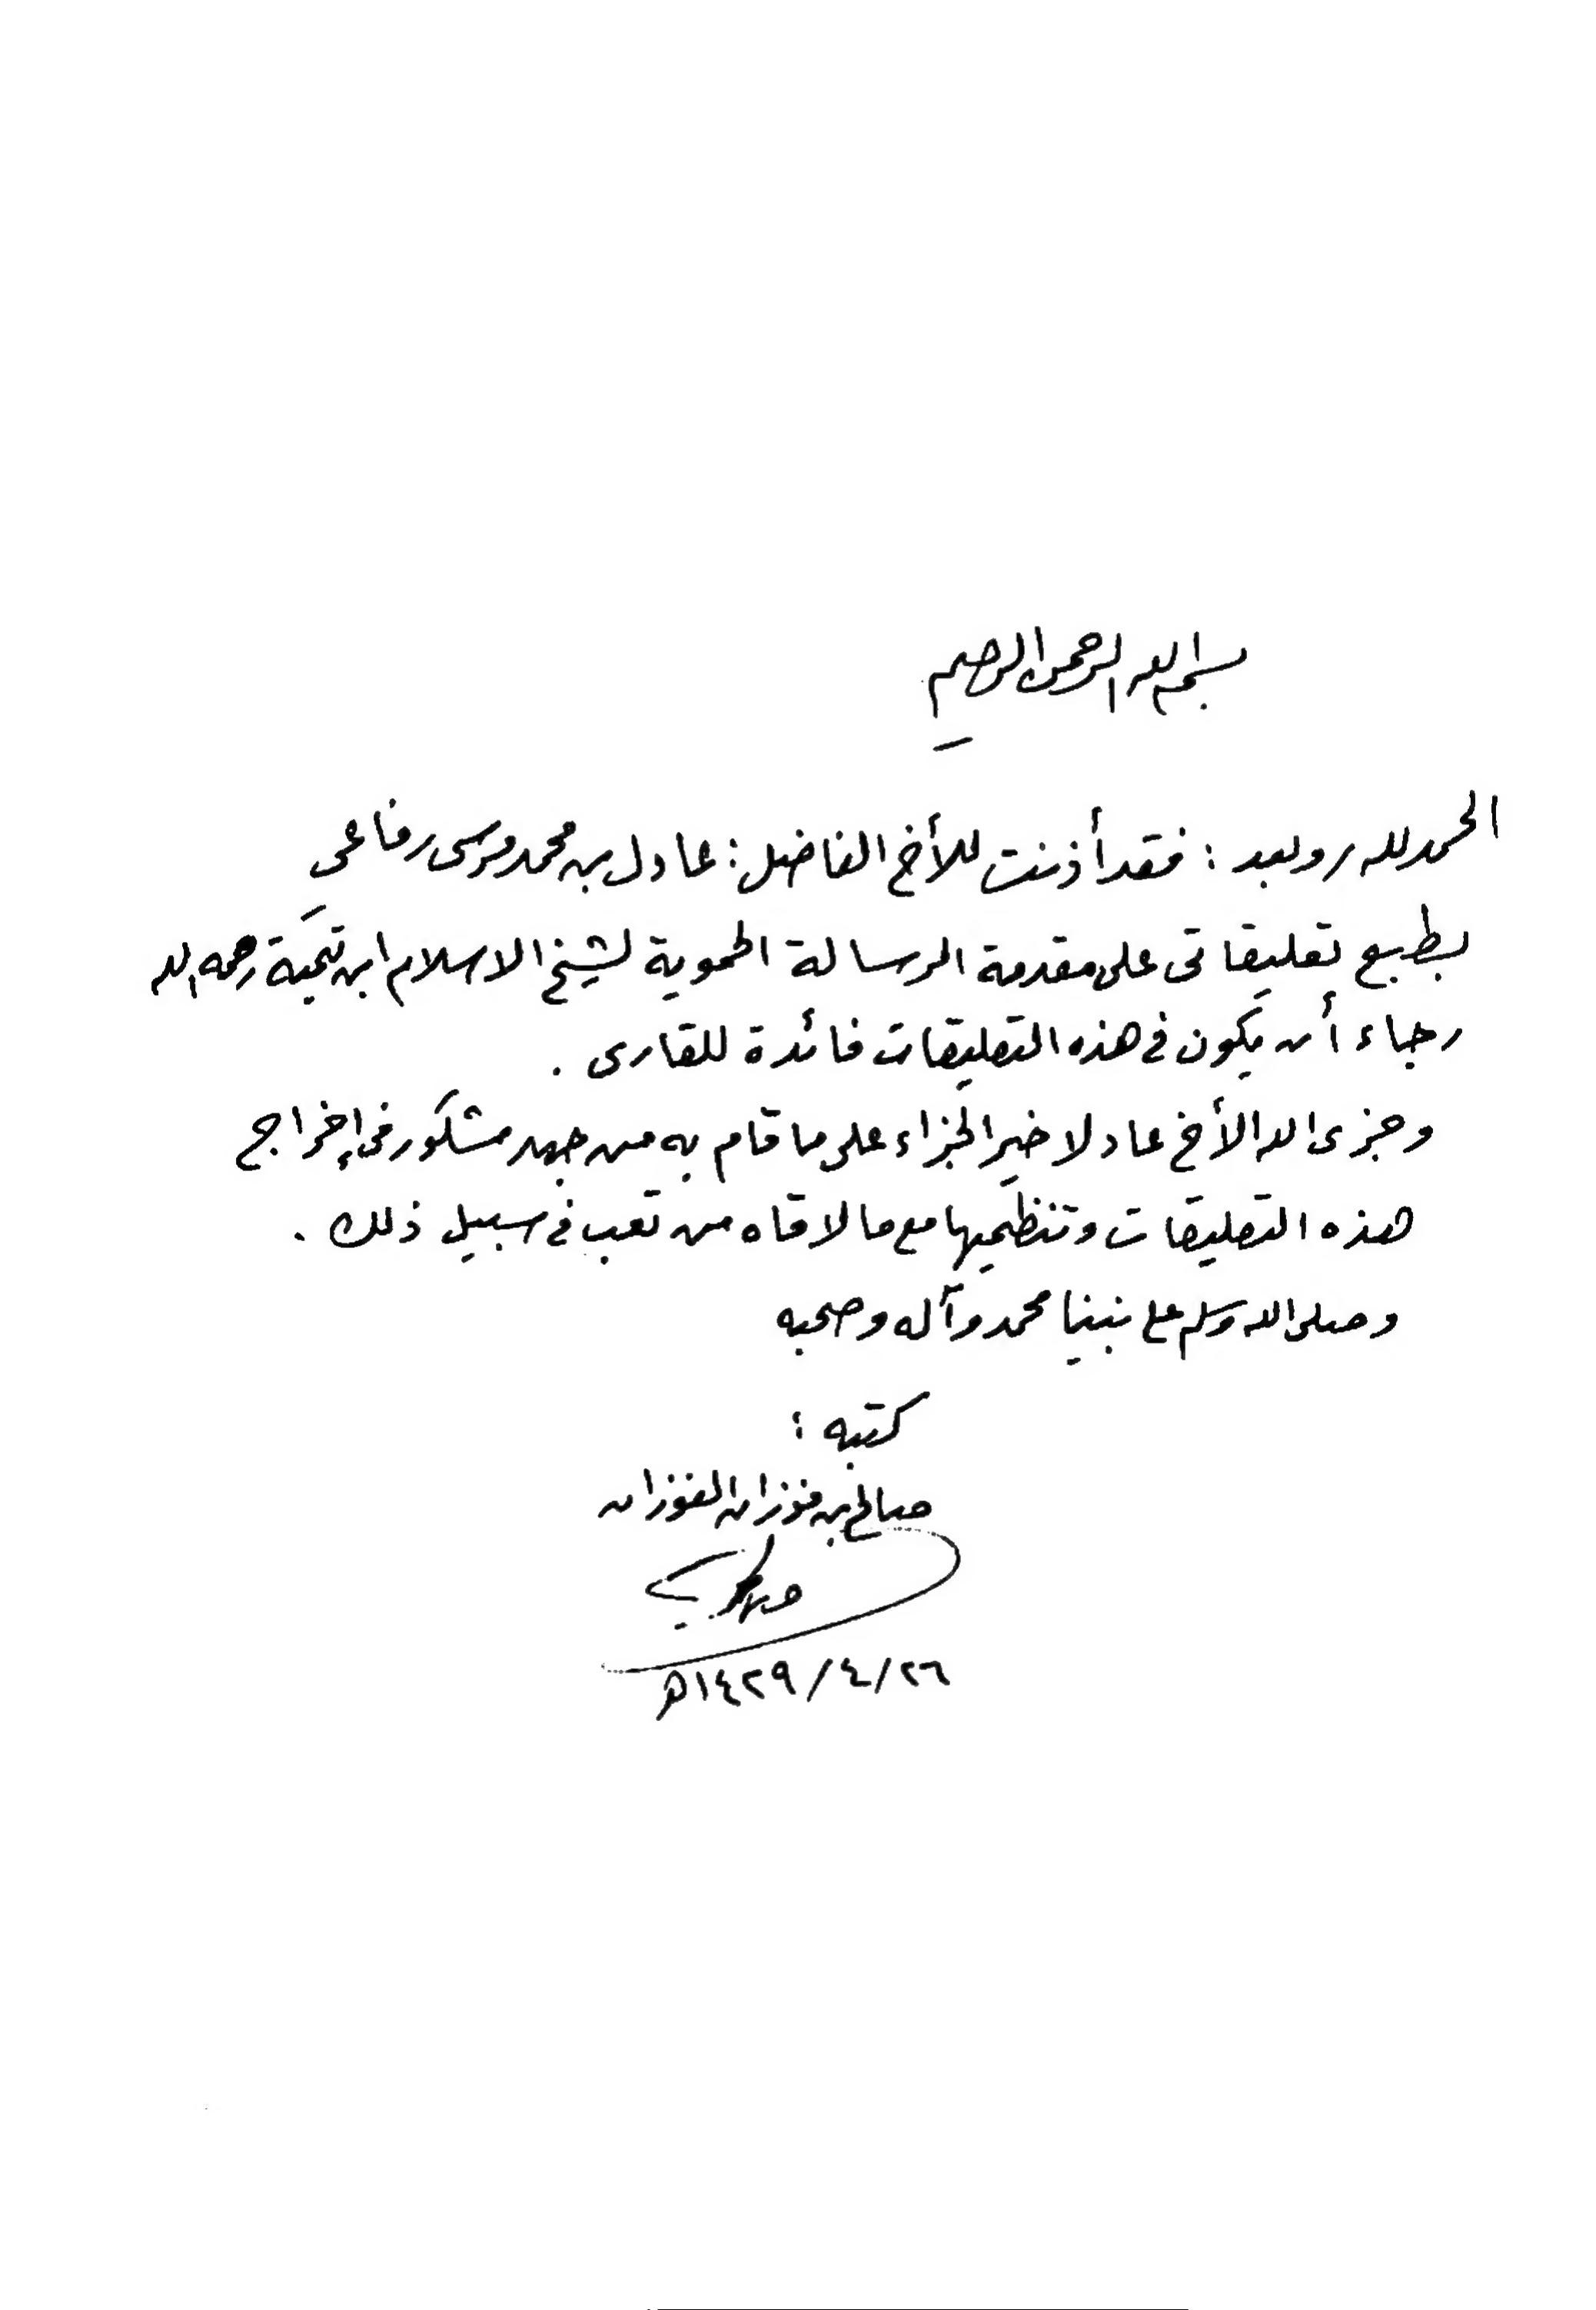 بسم الله الرحمن الرحيم
الحمد لله، وبعد: فقد أذنت للأخ الفاضل: عادل بن محمد مرسى رفاعى
بطبع تعليقاتى على مقدمة الرسالة الحموية لشيخ الاسلام ابن تيمية رحمه الله
رجاء أن يكون في هذه التعليقات فائدة للقارى.
وجزى الله الأخ عادلا خير الجزاء على ما قام به من جهد مشكور في إخراج
هذه التعليقات وتنظيمها مع ما لاقاه من تعب في سبيل ذلك.
وصلى الله وسلم على نبينا محمد وآله وصحبه
كتبه:
صالح بن فوزان الفوزان
٢٦/٤/١٤٢٩هـ